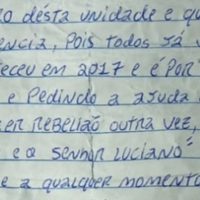 o désta unidade e qu
encia, Pois todos já
eceu em 2017 e é Por
e Pedindo a ajuda
er rebelião outra vez,
e o senhor Luciano
e a qualquer momento